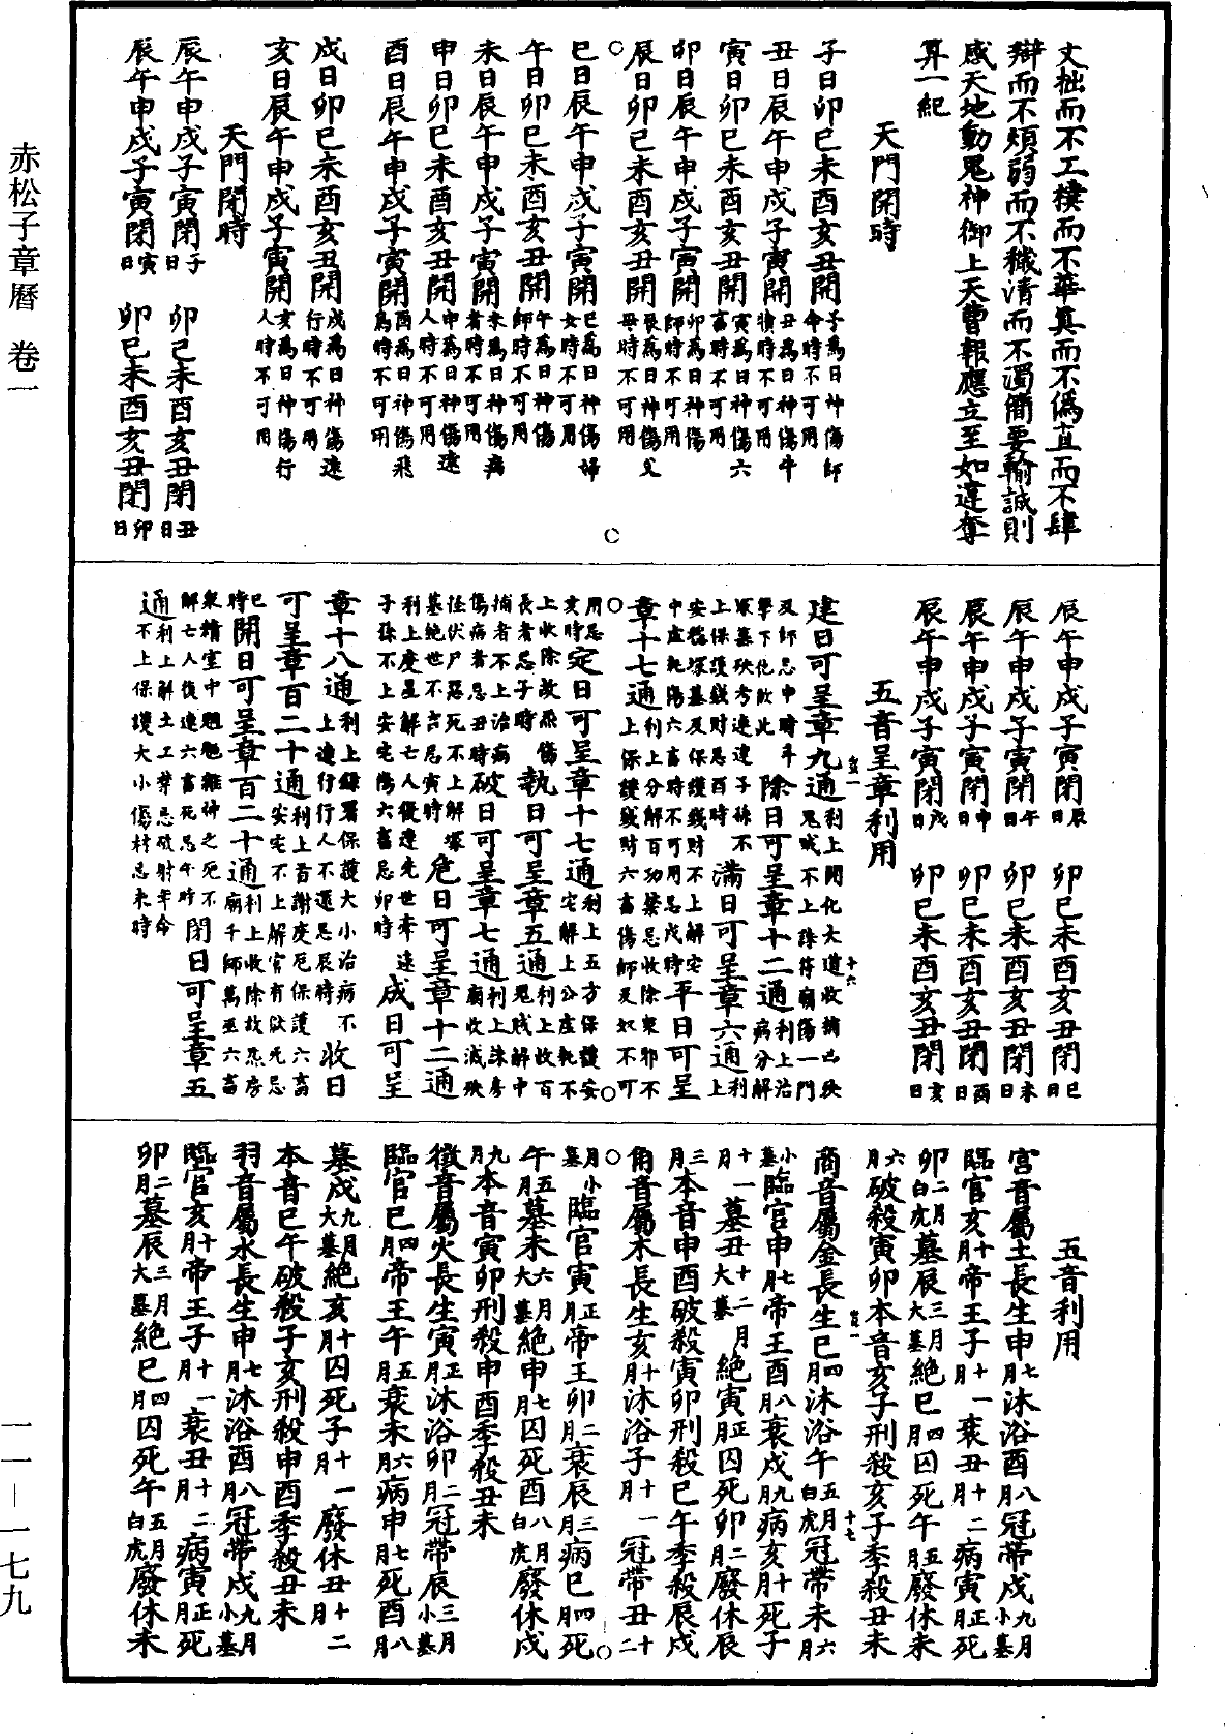 赤松子章曆　卷一
文拙而不工樸而不華真而不偽直而不肆
辯而不煩弱而不穢清而不濁簡要輸誠則
感天地動鬼神御上天曹報應立至如違奪
算一紀
天門開時
子日卯巳未酉亥丑開子為日神傷師命時不可用
丑日辰午申戌子寅開丑為日神傷牛犢時不可用
寅日卯巳未酉亥丑開寅為日神傷六畜時不可用
卯日辰午申戌子寅開卯為日神傷師時不可用
辰日卯巳未酉亥丑開辰為日神傷父母時不可用
巳日辰午申戌子寅開巳為日神傷婦女時不可用
午日卯巳未酉亥丑開午為日神傷師時不可用
未日辰午申戌子寅開未為日神傷病者時不可用
申日卯巳未酉亥丑開申為日神傷遠人時不可用
酉日辰午申戌子寅開酉為日神傷飛鳥時不可用
戌日卯巳未酉亥丑開戌為日神傷遠行時不可用
亥日辰午申戌子寅開亥為日神傷行人時不可用
天門閉時
辰午申戌子寅閉子日　卯巳未酉亥丑閉丑日
辰午申戌子寅閉寅日　卯巳未酉亥丑閉卯日
辰午申戌子寅閉辰日　卯巳未酉亥丑閉巳日
辰午申戌子寅閉午日　卯巳未酉亥丑閉未日
辰午申戌子寅閉申日　卯巳未酉亥丑閉酉日
辰午申戌子寅閉戌日　卯巳未酉亥丑閉亥日
五音呈章利用
建日可呈章九通利上開化大道收捕已殃鬼賊不上誅符廟傷一門
及師忌申時斗擊下化敗此除日可呈章十二通利上治病分解
冢墓殃考連逮子孫不上保護錢財忌酉時滿日可呈章六通利上
安穩冢墓及保護錢財不上解宅中虛耗傷六畜時不可用忌戌時平日可呈
章十七通利上分解百功禁忌收除眾邪不上保護錢財六畜傷師及奴不可
用忌亥時定日可呈章十七通利上五方保護安宅解上公虛耗不
上收除故炁傷長者忌子時執日可呈章五通利上收百鬼賊解中
捕者不上治病傷病者忌丑時破日可呈章七通利上誅房廟收滅殃
怪伏尸惡死不上解冢墓絕世不吉忌寅時危日可呈章十二通
利上度星解亡人復連先世牽逮子孫不上安宅傷六畜忌卯時成日可呈
章十八通利上錄署保護大小治病不上遠行行人不還忌辰時收日
可呈章百二十通利上首謝度厄保護六畜安宅不上解官有獄死忌
巳時開日可呈章百二十通利上收除故炁房廟千師萬巫六畜
眾精室中魍魎雜神之死不解亡人復連六畜死忌午時閉日可呈章五
通利上解土工葬忌破射年命不上保護大小傷村忌未時
五音利用
宮音屬土長生申七月沐浴酉八月冠帶戌九月小墓
臨官亥十月帝王子十一月衰丑十二月病寅正月死
卯二月白虎墓辰三月大墓絕巳四月囚死午五月廢休未
六月破殺寅卯本音亥子刑殺亥子季殺丑未
商音屬金長生巳四月沐浴午五月白虎冠帶未六月
小墓臨官申七月帝王酉八月衰戌九月病亥十月死子
十一月墓丑十二月大墓絕寅正月囚死卯二月廢休辰
三月本音申酉破殺寅卯刑殺巳午季殺辰戌
角音屬木長生亥十月沐浴子十一月冠帶丑十二
月小墓臨官寅正月帝王卯二月衰辰三月病巳四月死
午五月墓未六月大墓絕申七月囚死酉八月白虎廢休戌
九月本音寅卯刑殺申酉季殺丑未
徵音屬火長生寅正月沐浴卯二月冠帶辰三月小墓
臨官巳四月帝王午五月衰未六月病申七月死酉八月
墓戌九月大墓絕亥十月囚死子十一月廢休丑十二月
本音巳午破殺子亥刑殺申酉季殺丑未
羽音屬水長生申七月沐浴酉八月冠帶戌九月小墓
臨官亥十月帝王子十一月衰丑十二月病寅正月死
卯二月墓辰三月大墓絕巳四月囚死午五月白虎廢休未
一一—一七九